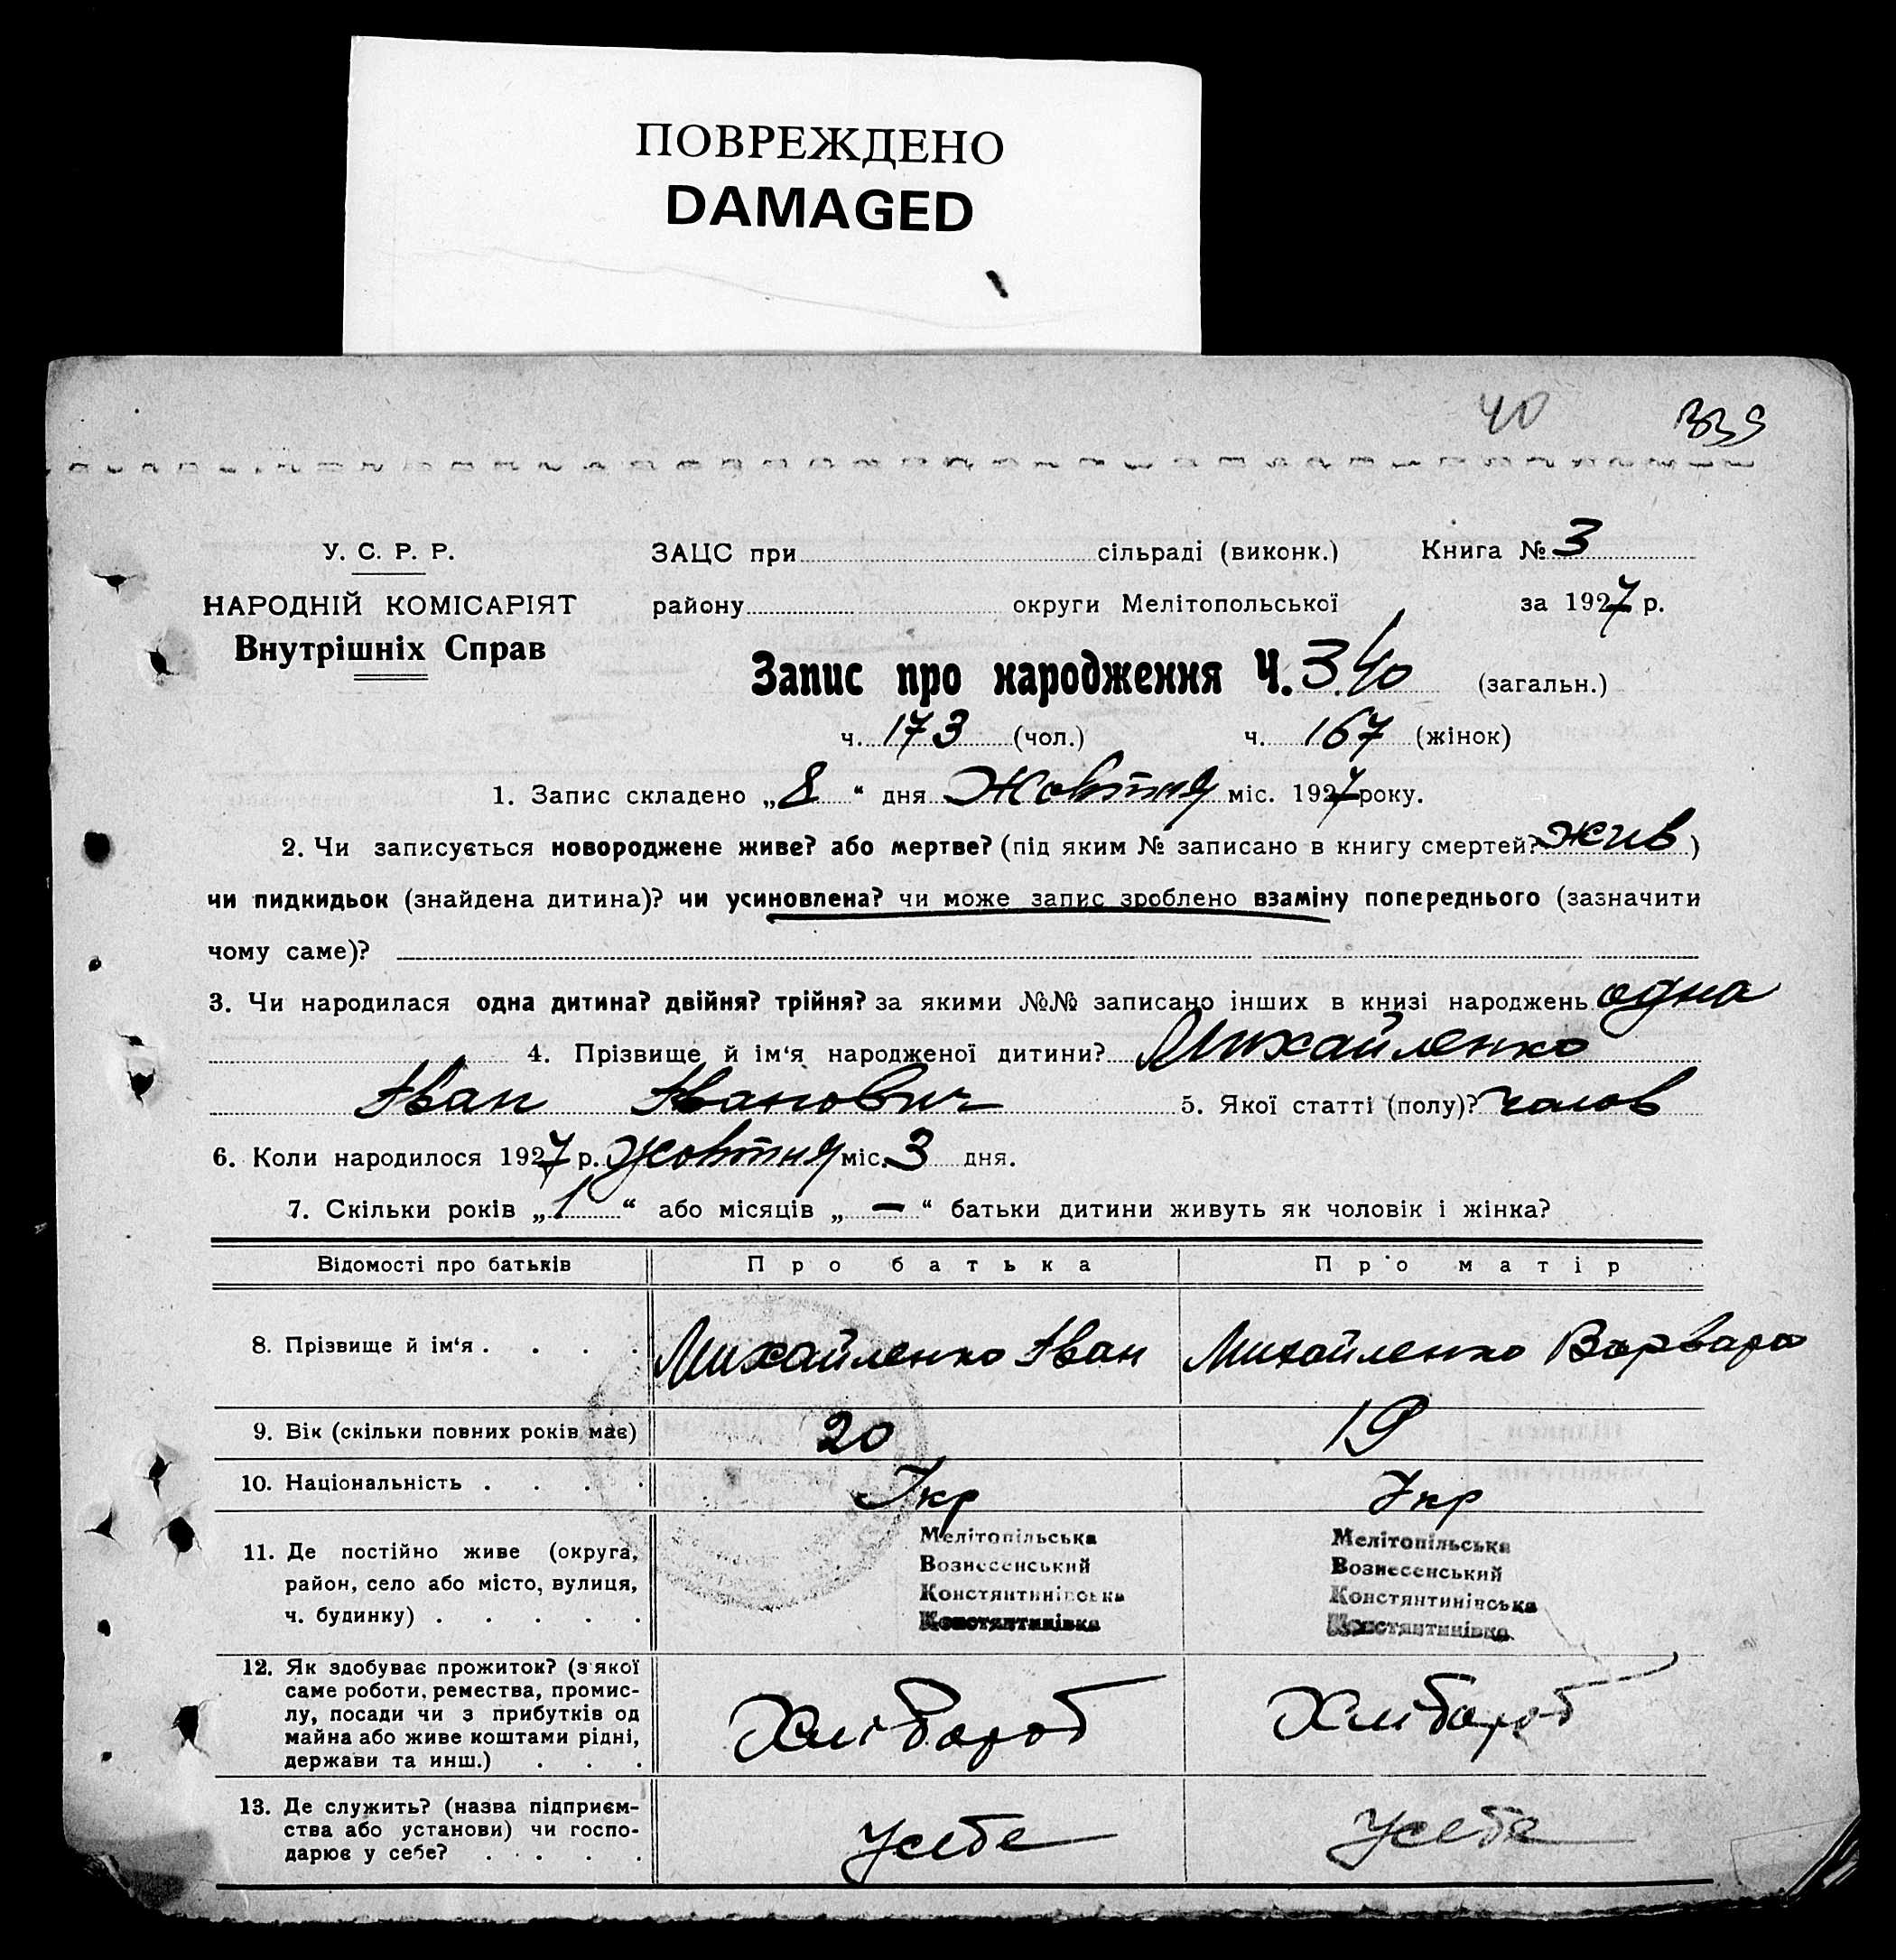 ПОВРЕЖДЕНО
DAMAGED
40 339
У. С. Р. Р. ЗАЦС при сільраді (виконк.) Книга № 3
НАРОДНІЙ КОМІСАРІЯТ району округи Мелітопольської за 1927 р.
Внутрішніх Справ
Запис про народження Ч. 340 (загальн.)
ч. 173 (чол.) ч. 167 (жінок)
1. Запис складено „8“ дня Жовтня міс. 1927 року.
2. Чи записується новороджене живе? або мертве? (під яким № записано в книгу смертей? жив)
чи пидкидьок (знайдена дитина)? чи усиновлена? чи може запис зроблено взаміну попереднього (зазначити
чому саме)?
3. Чи народилася одна дитина? двійня? трійня? за якими №№ записано інших в книзі народжень одна
4. Прізвище й ім‘я народженої дитини? Михайленко
Іван Іванович 5. Якої статті (полу)? чолов
6. Коли народилося 1927 р. Жовтня міс. 3 дня.
7. Скільки років „1“ або місяців „—“ батьки дитини живуть як чоловік і жінка?
Відомості про батьків Про батька Про матір
8. Прізвище й ім‘я . . . . Михайленко Іван Михайленко Варвара
9. Вік (скільки повних років має) 20 19
10. Національність . . . . Укр Укр
11. Де постійно живе (округа, Мелітопільська Мелітопільська
район, село або місто, вулиця, Вознесенський Вознесенський
ч. будинку) . . . . . Констянтинівська Констянтинівська
Констянтинівка Констянтинівка
12. Як здобуває прожиток? (з якої
саме роботи, ремества, промис-
лу, посади чи з прибутків од Хлібороб Хлібороб
майна або живе коштами рідні,
держави та инш.) . . .
13. Де служить? (назва підприєм-
ства або установи) чи госпо- Усебе Усебе
дарює у себе? . . . .